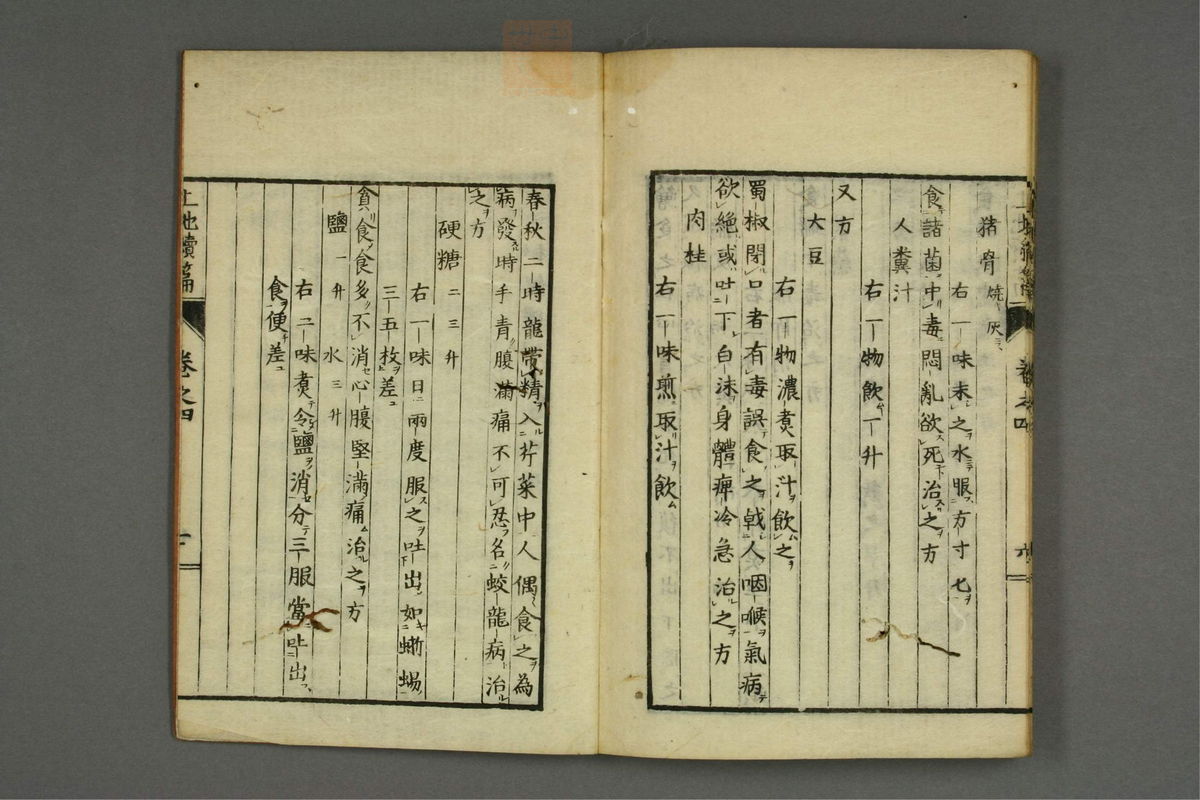 猪骨 焼灰
右一味末之水服方寸七
食諸菌中毒悶亂欲死治之方
人糞汁
右一物飲一升
又方
大豆
右一物濃煮取汁飲之
蜀椒閉口者有毒誤食之戟人咽喉氣病
欲絶或吐下白沫身體痺冷急治之方
肉桂
右一味煎取汁飲
春秋二時龍帶精入芹菜中人偶食之為
病發時手青腹滿痛不可忍名蛟龍病治
之方
硬糖 二三升
右一味日兩度服之吐出如蜥蜴
三五枚差
貪食食多不消心腹堅滿痛治之方
鹽一升 水三升
右二味煮令鹽消分三服當吐出
食便差
卷之四